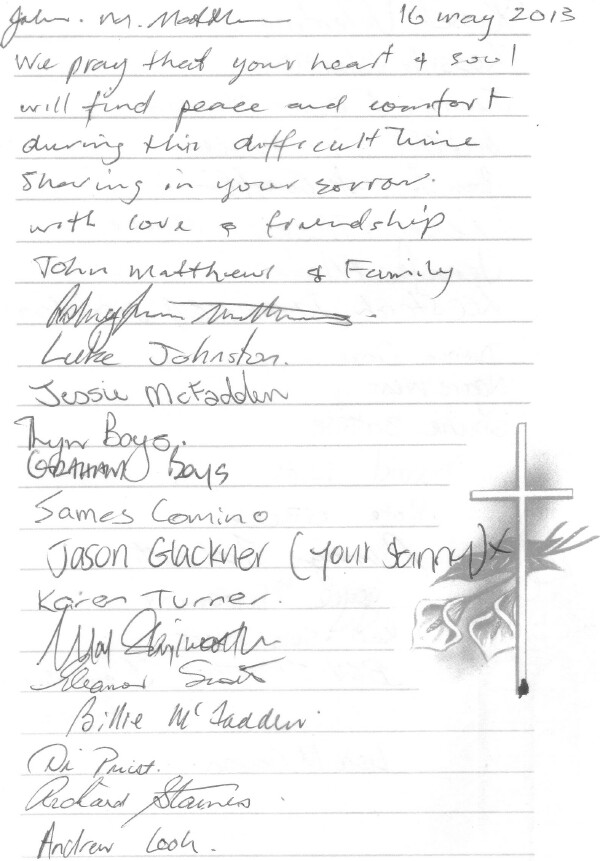 John. M. Matthews 16 may 2013
We pray that your heart & soul
will find peace and comfort
during this difficult time
Sharing in your sorrow.
with love & friendship
John Matthews & Family
Luke Johnston.
Jessie McFadden
Lyn Boys.
GRAHAM Boys
James Comino
Jason Glackner (your stanny) x
Karen Turner.
Eleanor Scott
Billie McFadden.
Di Priest.
Richard Stainers.
Andrew Cook.